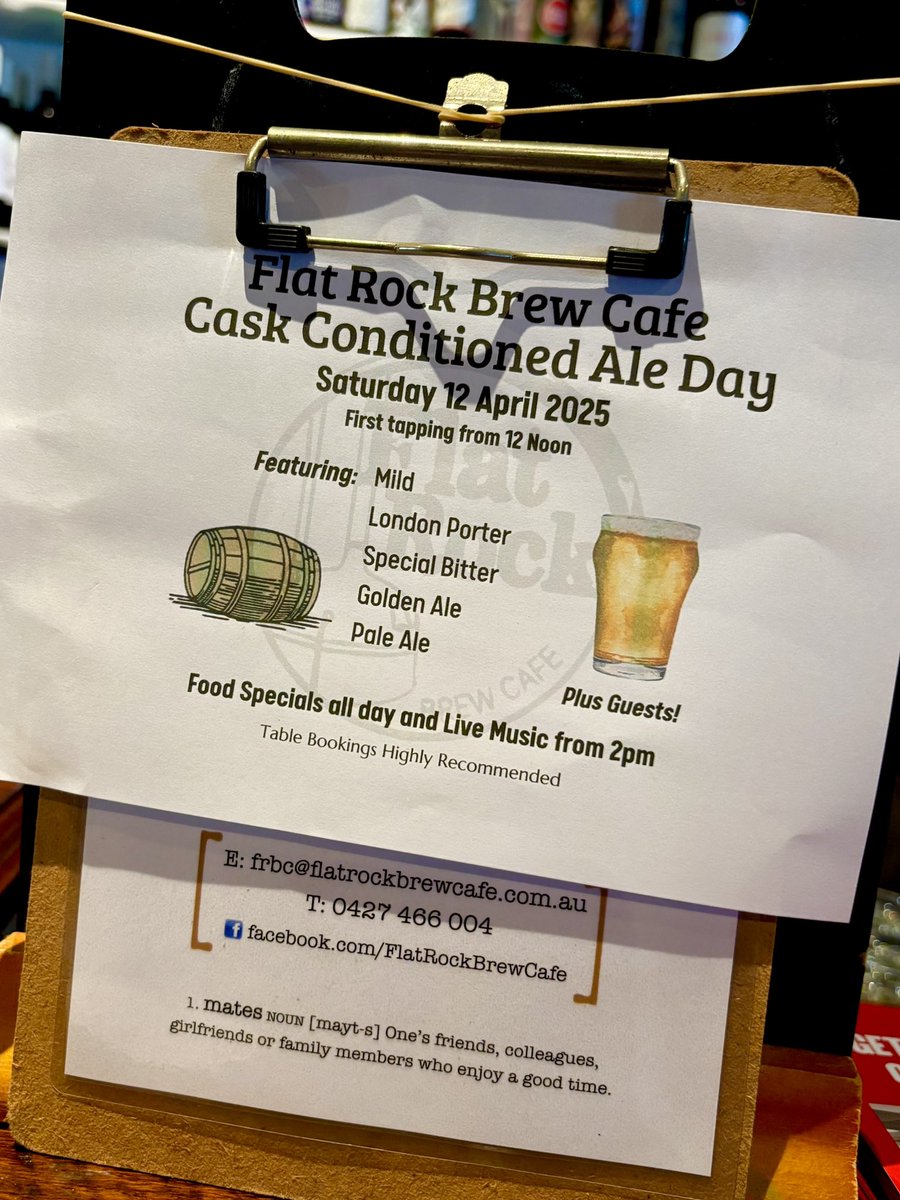 Flat Rock Brew Cafe
Cask Conditioned Ale Day
Saturday 12 April 2025
First tapping from 12 Noon
Featuring: Mild
London Porter
Special Bitter
Golden Ale
Pale Ale
Flat
Rock
BREW CAFE
Plus Guests!
Food Specials all day and Live Music from 2pm
Table Bookings Highly Recommended
E: frbc@flatrockbrewcafe.com.au
T: 0427 466 004
f facebook.com/FlatRockBrewCafe
1. mates NOUN [mayt-s] One's friends, colleagues,
girlfriends or family members who enjoy a good time.